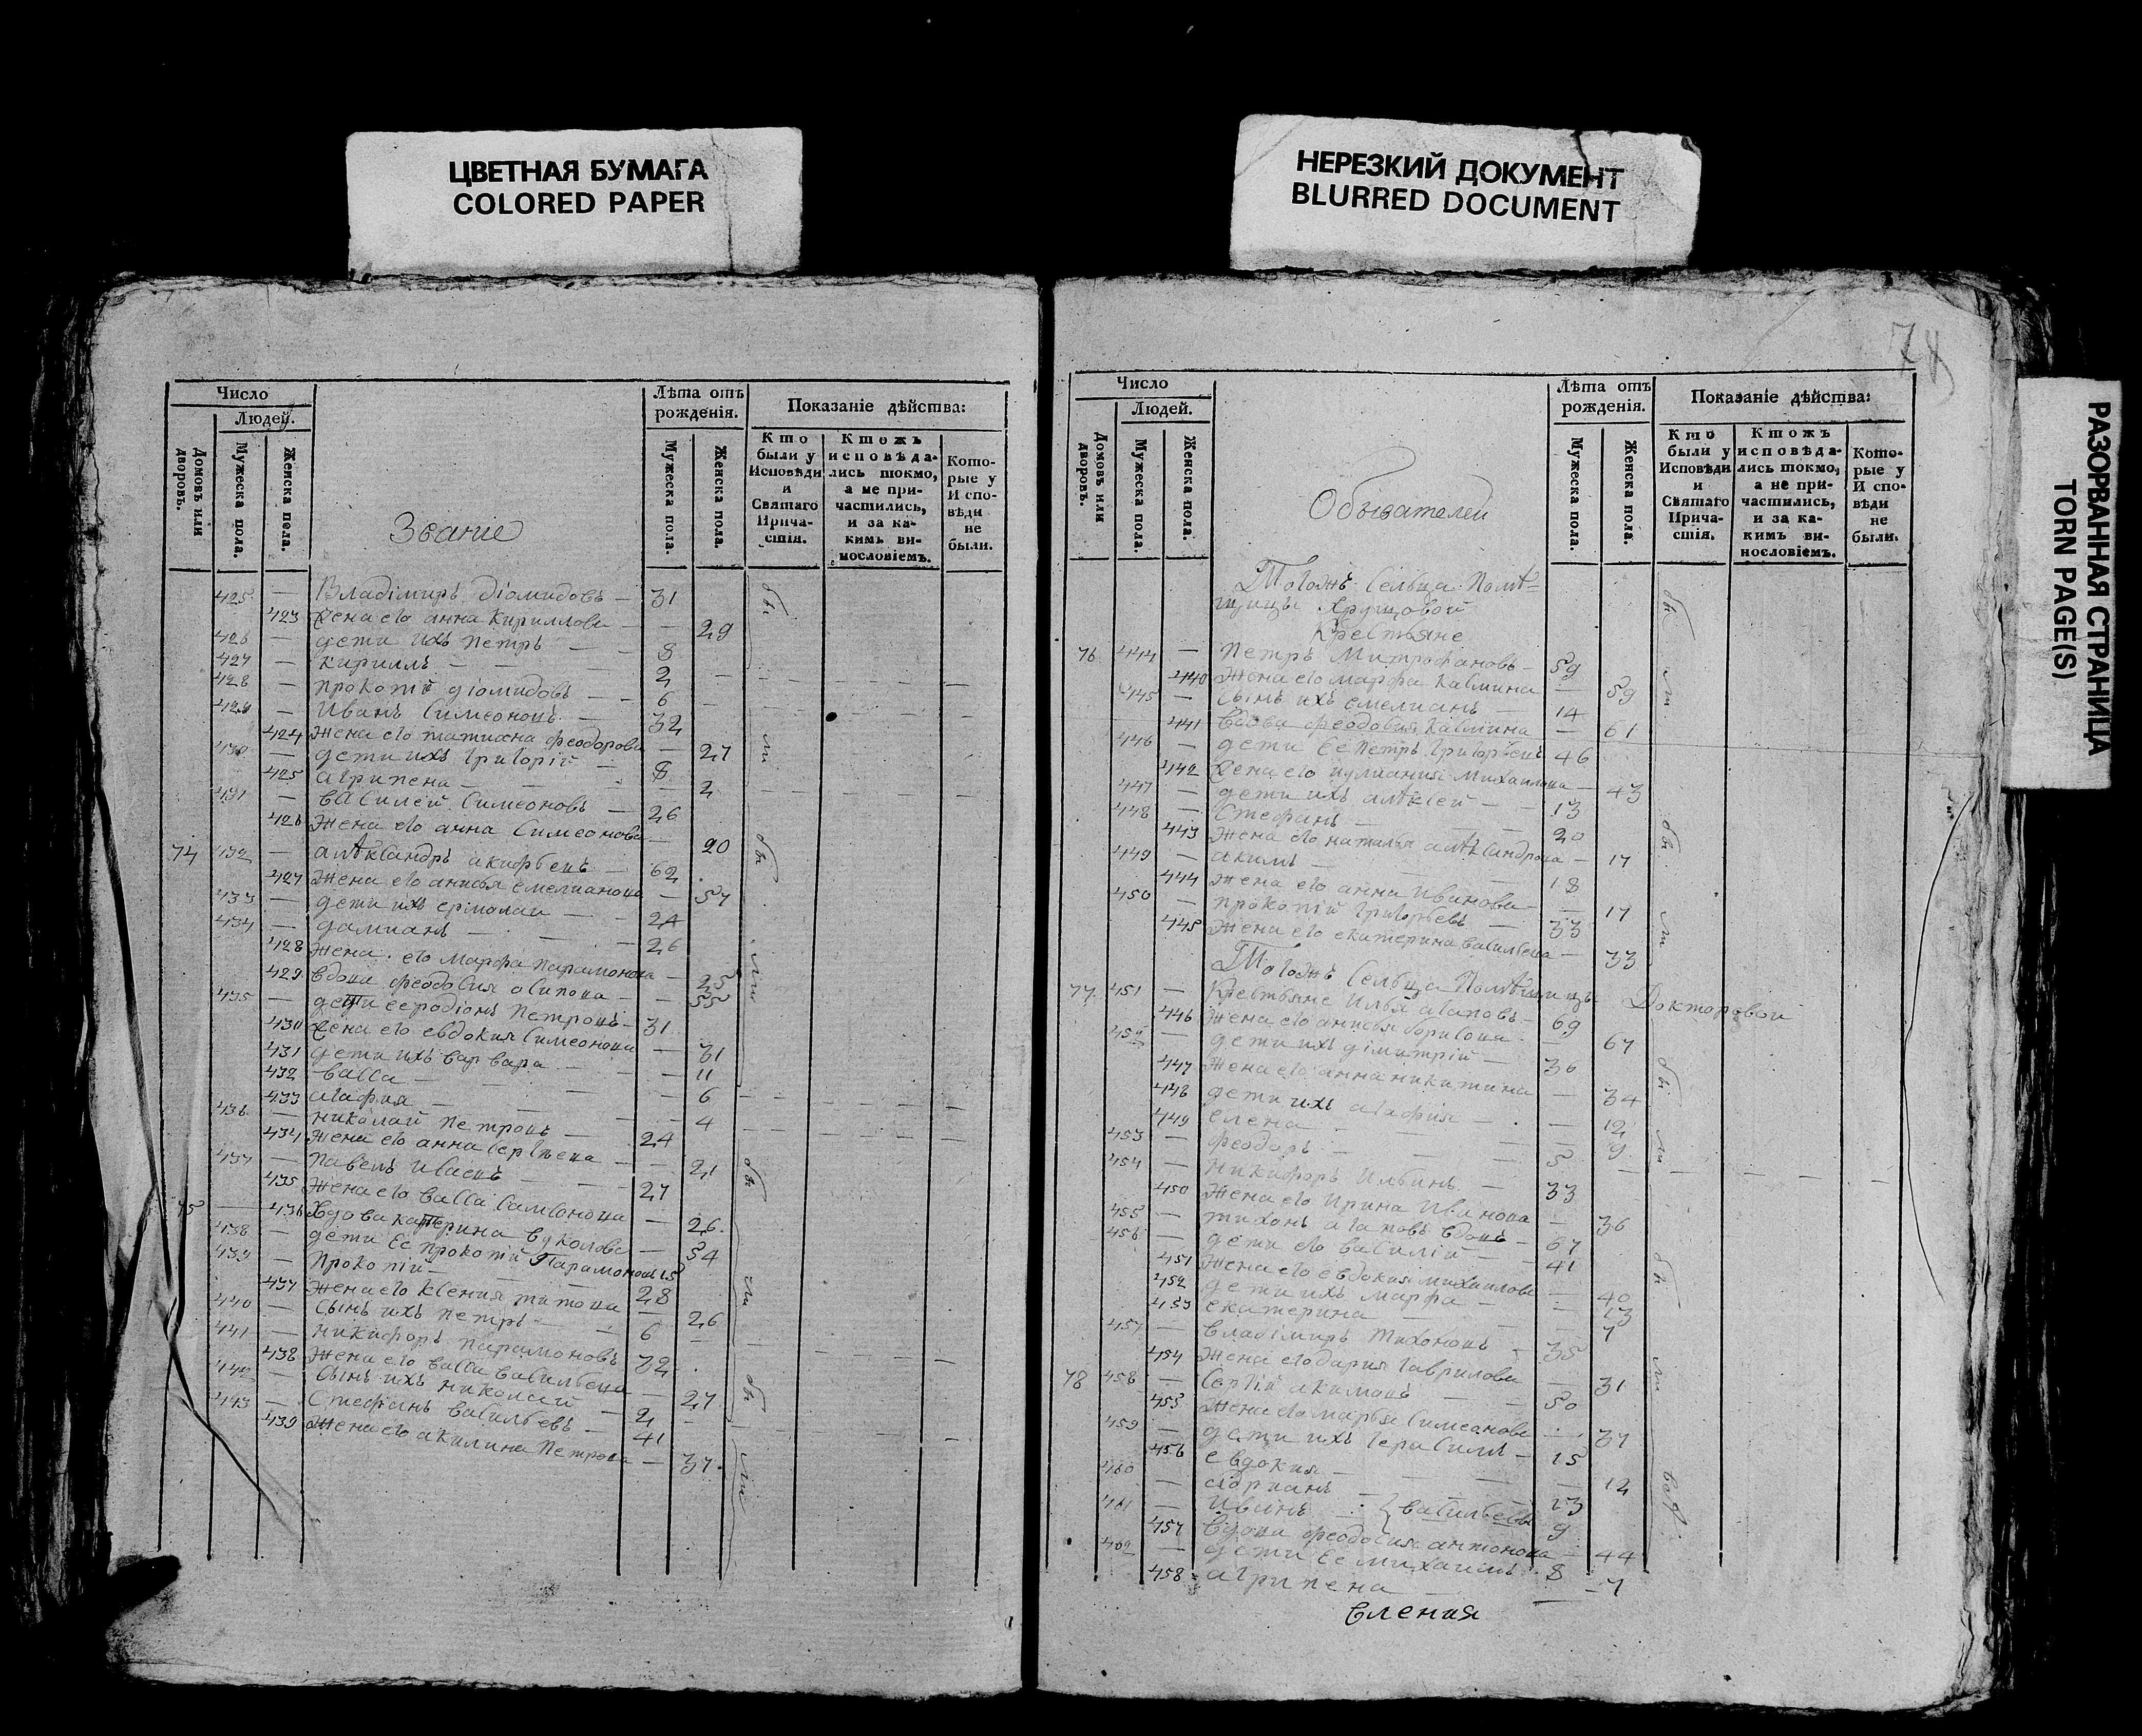 ЦВЕТНАЯ БУМАГА
COLORED PAPER
НЕРЕЗКИЙ ДОКУМЕНТ
BLURRED DOCUMENT
РАЗОРВАННАЯ СТРАНИЦА
TORN PAGE(S)
78
Число
Людей.
Домовъ или дворовъ.
Мужеска пола.
Женска пола.
Званіе
Лѣта отъ рожденія.
Мужеска пола.
Женска пола.
Показаніе дѣйства:
Кто были у Исповѣди и Святаго Прича-стія.
Ктожъ исповѣда-лись токмо, а не при-частились, и за ка-кимъ ви-нословіемъ.
Кото-рые у Испо-вѣди не были.
425 — Владіміръ Діомидовъ — 31
423 Жена его анна Кириллова — 29
426 — дети ихъ Петръ — 8
427 — Кириллъ — 2
428 — прокопій діомидовъ — 6
429 — Иванъ Симеоновъ — 32
424 Жена его татиана феодорова — 27
430 — дети ихъ Григорій — 8
425 агрипена — 2
431 — василей Симеоновъ — 26
426 Жена его анна Симеонова — 20
74 432 — алеѯандръ акифьевъ — 62
427 Жена его анисья емелианова — 57
433 — дети ихъ ермолаи — 24
434 — дамианъ — 26
428 Жена его Марфа Парамонова — 25
429 вдова феодосия осипова — 55
435 — дети ее родіонъ Петровъ — 31
430 Жена его евдокия Симеонова — 31
431 дети ихъ варвара — 11
432 васса — 6
433 агафия — 4
436 — николай Петровъ — 24
434 Жена его анна Сергѣева — 21
437 — павелъ Исаевъ — 27
435 Жена его васса Самсонова — 26
75 — 436 Вдова катерина вуколова — 54
438 — дети ее прокопій Парамоновъ 15
439 — Прокопій — 28
437 Жена его ксения титова — 26
440 — Сынъ ихъ петръ — 6
441 — никифоръ парамоновъ 32
438 Жена его васса васильева — 27
442 — Сынъ ихъ николай — 2
443 — Стефанъ васильевъ — 41
439 Жена его акилина Петрова — 37
Число
Людей.
Домовъ или дворовъ.
Мужеска пола.
Женска пола.
Обывателей
Лѣта отъ рожденія.
Мужеска пола.
Женска пола.
Показаніе дѣйства:
Кто были у Исповѣди и Святаго Прича-стія.
Ктожъ исповѣда-лись токмо, а не при-частились, и за ка-кимъ ви-нословіемъ.
Кото-рые у Испо-вѣди не были.
Тогожъ Сельца Помѣ=
щицы Хрущовой
Крестьяне
76 444 — Петръ Митрофановъ — 59
440 Жена его марфа Касмина — 59
445 — Сынъ ихъ емелианъ — 14
441 вдова феодосия Касмина — 61
446 — дети ее петръ Григорьевъ 46
442 Жена его иулиания Михаилова — 43
447 — дети ихъ алеѯей — 13
448 — Стефанъ — 20
443 Жена его наталья алеѯандрова — 17
449 — акимъ — 18
444 Жена его анна Иванова — 17
450 — прокопій Григорьевъ — 33
445 Жена его екатерина васильева — 33
Тогожъ Сельца Помѣщицы Докторовой
77 451 — Крестьяне Илья агаповъ — 69
446 Жена его анисья борисова — 67
452 — дети ихъ димитрій — 30
447 Жена его анна никитина — 34
448 дети ихъ агафия — 12
449 елена — 9
453 — феодоръ — 5
454 — никифоръ Ильинъ — 33
450 Жена его Ирина Иванова — 36
455 — тихонъ агаповъ вдовъ — 67
456 — дети его василій — 41
451 Жена его евдокия михаилова — 40
452 дети ихъ марфа — 13
453 екатерина — 7
457 — владіміръ тихоновъ — 35
454 Жена его дария гаврилова — 31
78 458 — Сергій акимовъ — 50
455 Жена его марья Симеонова — 37
459 — дети ихъ герасимъ — 15
456 евдокия — 12
460 — адрианъ — 13
461 — Иванъ } васильевы 9
457 вдова феодосия антонова — 44
462 — дети ее михаилъ 8
458 агрипена — 7
вления